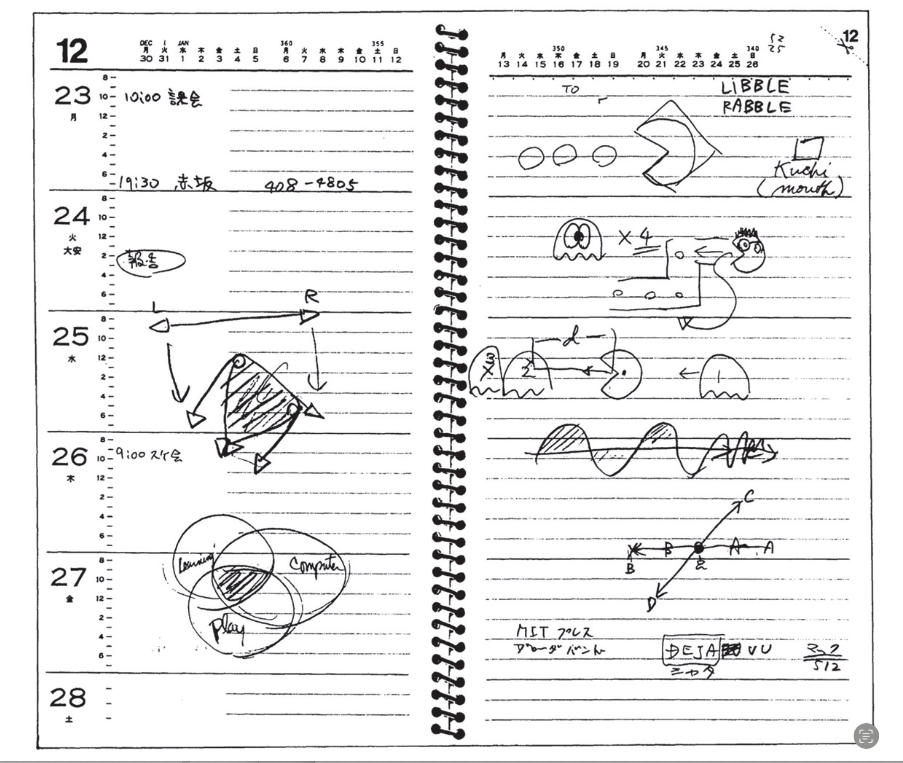 12
DEC 1 JAN 360 355
月 火 水 木 金 土 日 月 火 水 木 金 土 日
30 31 1 2 3 4 5 6 7 8 9 10 11 12
23
月
8
10
12
2
4
6
10:00 課会
19:30 赤坂 408-4805
24
火
大安
8
10
12
2
4
6
報告
L R
25
水
8
10
12
2
4
6
26
木
8
10
12
2
4
6
9:00 スケ会
Learning Computer
Play
27
金
8
10
12
2
4
6
28
土
350 345 340
月 火 水 木 金 土 日 月 火 水 木 金 土 日
13 14 15 16 17 18 19 20 21 22 23 24 25 26
52
25
12
TO
LIBBLE
RABBLE
Kuchi
(mouth)
×4
d
×3 2 1
C
B B A A
D
MIT プレス
ブローダーバンド
DEJA VU
シャタ
マック
512